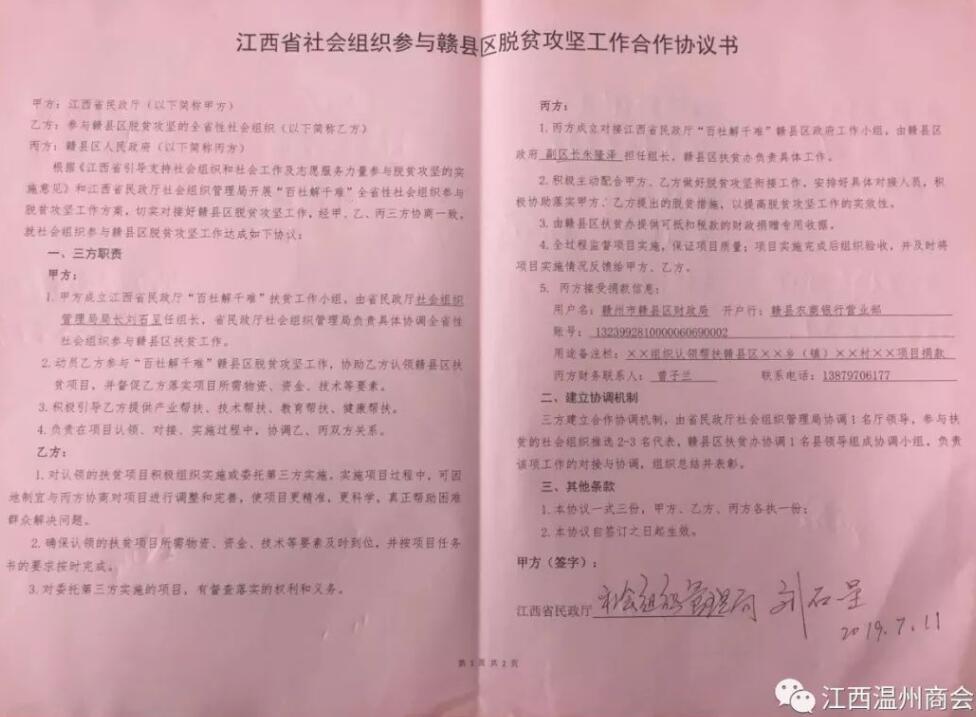 江西省社会组织参与赣县区脱贫攻坚工作合作协议书
甲方：江西省民政厅（以下简称甲方）
乙方：参与赣县区脱贫攻坚的全省性社会组织（以下简称乙方）
丙方：赣县区人民政府（以下简称丙方）
根据《江西省引导支持社会组织和社会工作及志愿服务力量参与脱贫攻坚的实
施意见》和江西省民政厅社会组织管理局开展“百社解千难”全省性社会组织参与
脱贫攻坚工作方案，切实对接好赣县区脱贫攻坚工作，经甲、乙、丙三方协商一致，
就社会组织参与赣县区脱贫攻坚工作达成如下协议：
一、三方职责
甲方：
1.甲方成立江西省民政厅“百社解千难”扶贫工作小组，由省民政厅社会组织
管理局局长刘石呈任组长，省民政厅社会组织管理局负责具体协调全省性
社会组织参与赣县区扶贫工作。
2.动员乙方参与“百社解千难”赣县区脱贫攻坚工作，协助乙方认领赣县区扶
贫项目，并督促乙方落实项目所需物资、资金、技术等要素。
3.积极引导乙方提供产业帮扶、技术帮扶、教育帮扶、健康帮扶。
4.负责在项目认领、对接、实施过程中，协调乙、丙双方关系。
乙方：
1.对认领的扶贫项目积极组织实施或委托第三方实施，实施项目过程中，可因
地制宜与丙方协商对项目进行调整和完善，使项目更精准，更科学，真正帮助困难
群众解决问题。
2.确保认领的扶贫项目所需物资、资金、技术等要素及时到位，并按项目任务
书的要求按时完成。
3.对委托第三方实施的项目，有督查落实的权利和义务。
丙方：
1.丙方成立对接江西省民政厅“百社解千难”赣县区政府工作小组，由赣县区
政府 副区长朱隆泽 担任组长，赣县区扶贫办负责具体工作。
2.积极主动配合甲方、乙方做好脱贫攻坚衔接工作，安排好具体对接人员，积
极协助落实甲方、乙方提出的脱贫措施，以提高脱贫攻坚工作的实效性。
3.由赣县区扶贫办提供可抵扣税款的财政捐赠专用收据。
4.全过程监督项目实施，保证项目质量；项目实施完成后组织验收，并及时将
项目实施情况反馈给甲方、乙方。
5. 丙方接受捐款信息：
用户名：赣州市赣县区财政局 开户行：赣县农商银行营业部
账号：1323992810000060690002
用途备注栏：××组织认领帮扶赣县区××乡（镇）××村××项目捐款
丙方财务联系人：曾子兰 联系电话：13879706177
二、建立协调机制
三方建立合作协调机制，由省民政厅社会组织管理局协调1名厅领导，参与扶
贫的社会组织推选2-3名代表，赣县区扶贫办协调1名县领导组成协调小组，负责
该项工作的对接与协调，组织总结并表彰。
三、其他条款
1.本协议一式三份，甲方、乙方、丙方各执一份；
2.本协议自签订之日起生效。
甲方（签字）：
江西省民政厅 社会组织管理局 刘石呈
2019.7.11
第1页共2页
江西温州商会